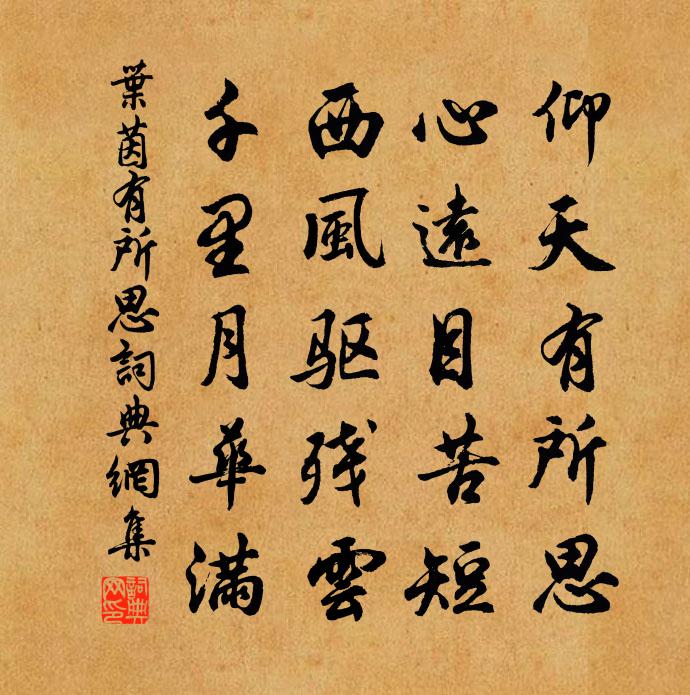 仰天有所思
心遠目苦短
西風驱残雲
千里月華满
葉茵有所思詞典網集
詞典
网印